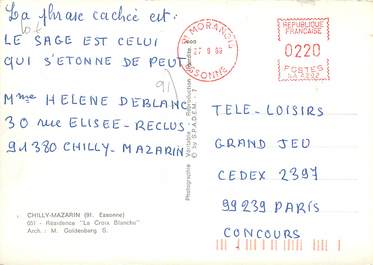 La phrase cachée est:
LE SAGE EST CELUI
QUI S'ETONNE DE PEUT
91
Mme HELENE DEBLANC
30 rue ELISEE-RECLUS
91380 CHILLY-MAZARIN
CHILLY-MAZARIN (91. Essonne)
051 - Résidence "La Croix Blanche"
Arch. : M. Goldenberg S.
Photographie Véritable - Reproduction Interdite
© by S.P.A.D.E.M.
MORANGIS
27 9 89
ESSONNE
REPUBLIQUE
FRANCAISE
0220
POSTES
TELE-LOISIRS
GRAND JEU
CEDEX 2397
99239 PARIS
CONCOURS